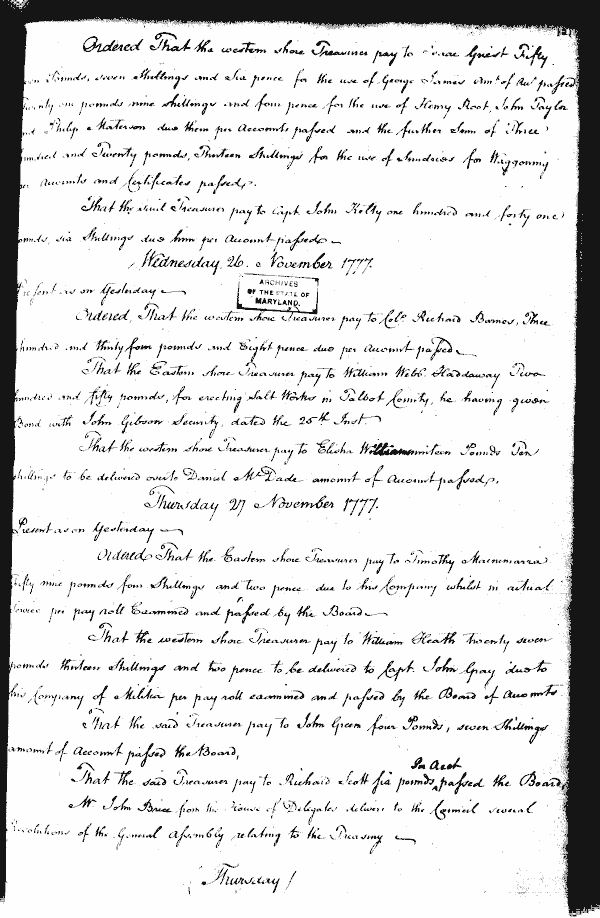 121
Ordered That the western shore Treasurer pay to Isaac Griest Fifty
Pounds, seven Shillings and Six pence for the use of George James Amt. of Acct. passed
twenty one pounds nine shillings and four pence for the use of Henry Root, John Taylor
and Philip Materson due them per Accounts passed and the further Sum of Three
hundred and Twenty pounds, Thirteen Shillings for the use of Sundries for Waggoning
per Accounts and Certificates passed.
That the said Treasurer pay to Capt. John Kelty one hundred and forty one
pounds, six Shillings due him per Account passed
Wednesday 26. November 1777.
Present as on Yesterday
ARCHIVES
OF THE STATE OF
MARYLAND.
Ordered, That the western shore Treasurer pay to Colo. Richard Barnes, Three
hundred and thirty four pounds and Eight pence due per Account passed
That the Eastern shore Treasurer pay to William Webb Haddaway Two
hundred and fifty pounds, for erecting Salt Works in Talbot County, he having given
Bond with John Gibson Security, dated the 25th Inst.
That the western shore Treasurer pay to Elisha Pounds Ten
shillings to be delivered over to Daniel McDade amount of Account passed.
Thursday 27 November 1777.
Present as on Yesterday
Ordered That the Eastern shore Treasurer pay to Timothy Macnemarra
Fifty nine pounds four Shillings and two pence due to his Company whilst in actual
Service per pay roll Examined and passed by the Board
That the western shore Treasurer pay to William Heath twenty seven
pounds thirteen Shillings and two pence to be delivered to Capt. John Gray due to
his Company of Militia per pay roll examined and passed by the Board of Accounts
That the said Treasurer pay to John Green four Pounds, seven Shillings
amount of Account passed the Board,
In Acct
That the said Treasurer pay to Richard Scott six pounds, passed the Board,
Mr. John Brice from the House of Delegates delivers to the Council several
Resolutions of the General Assembly relating to the Treasury
Thursday